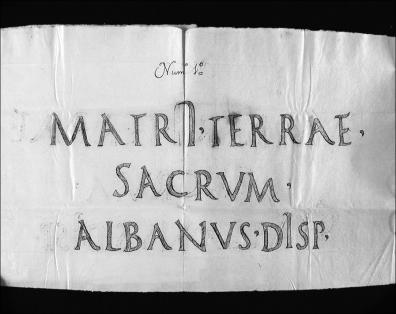 Numº 1º
MATRI, TERRAE,
SACRVM,
ALBANVS, DISP,